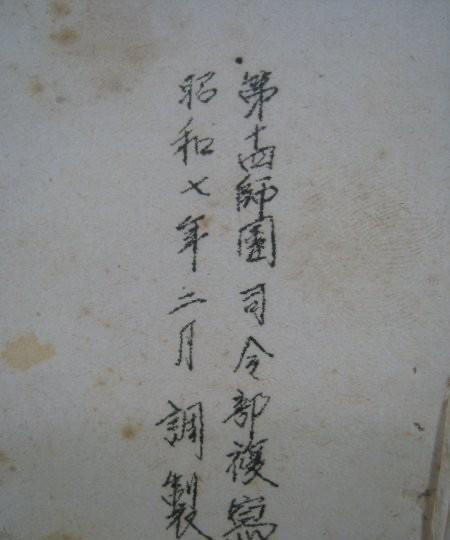 第十四師團司令部複寫
昭和七年二月調製